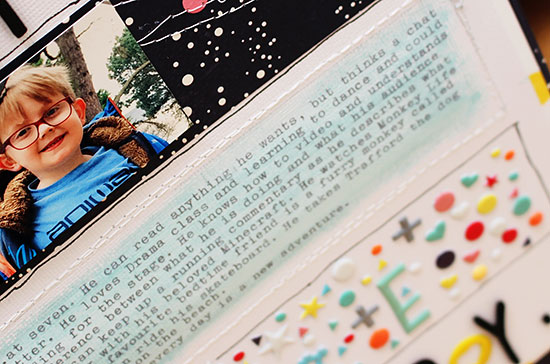 at seven. He can read anything he wants, but thinks a chat
tter. He loves Drama class and learning to dance and could
for the stage. He knows how to video and understands
erence between what he is doing and what his audience
an keep up a running commentary as he describes what
favourite, loved Minecraft. He watches Monkey life
bedtime friend is Harry monkey called
skateboard. He takes Trafford the dog
every day is a new adventure.
E
OY.